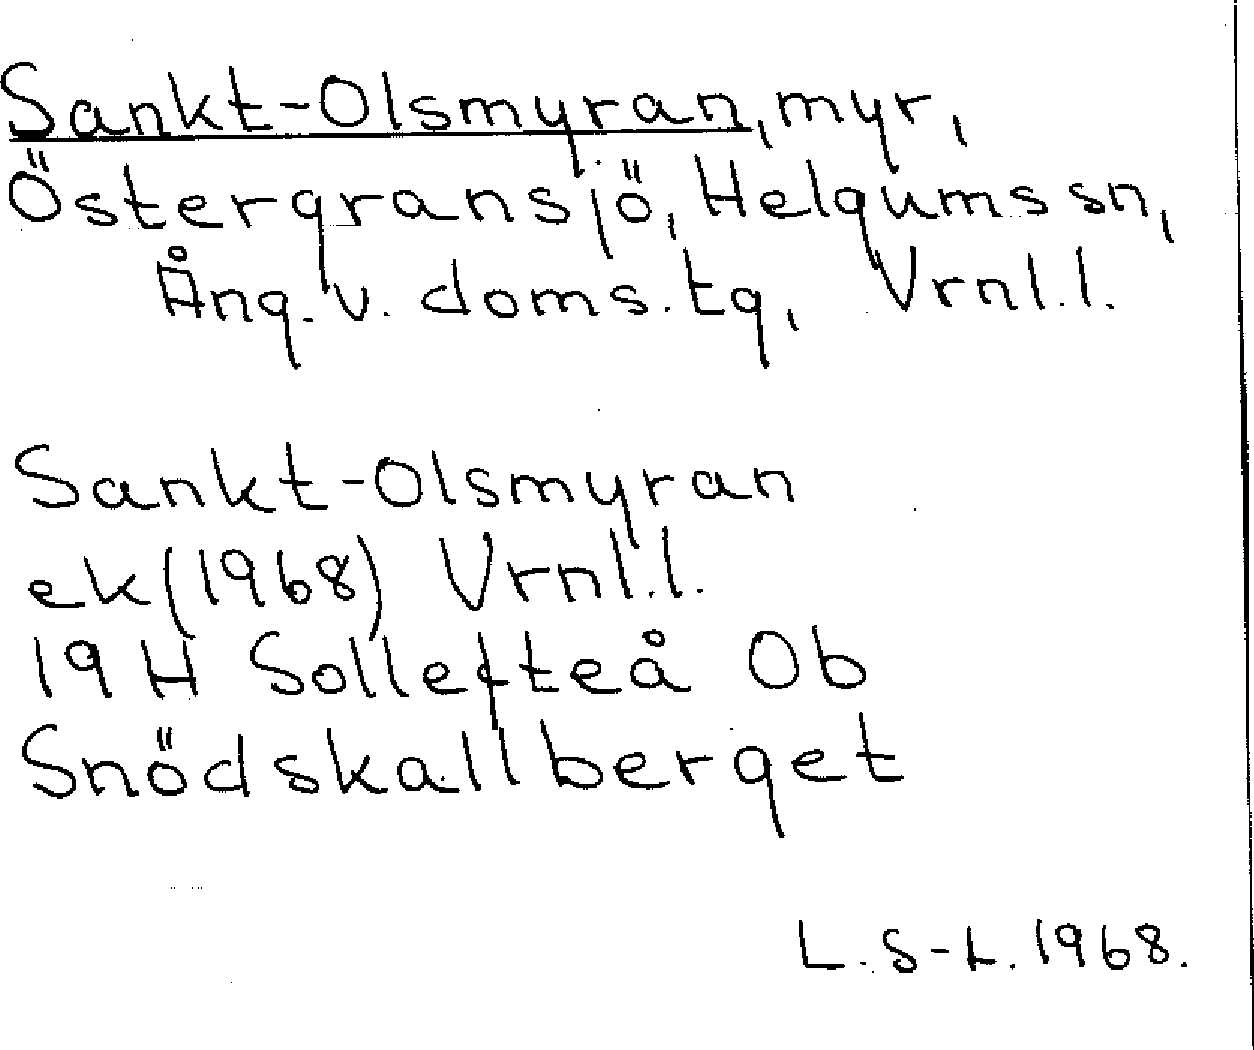 Sankt-Olsmyran, myr,
Östergransjö, Helgums sn,
Ång. v. doms. tg, Vrnl.l.
Sankt-Olsmyran
ek(1968) Vrnl.l.
19 H Sollefteå Ob
Snödskallberget
L.S-L. 1968.